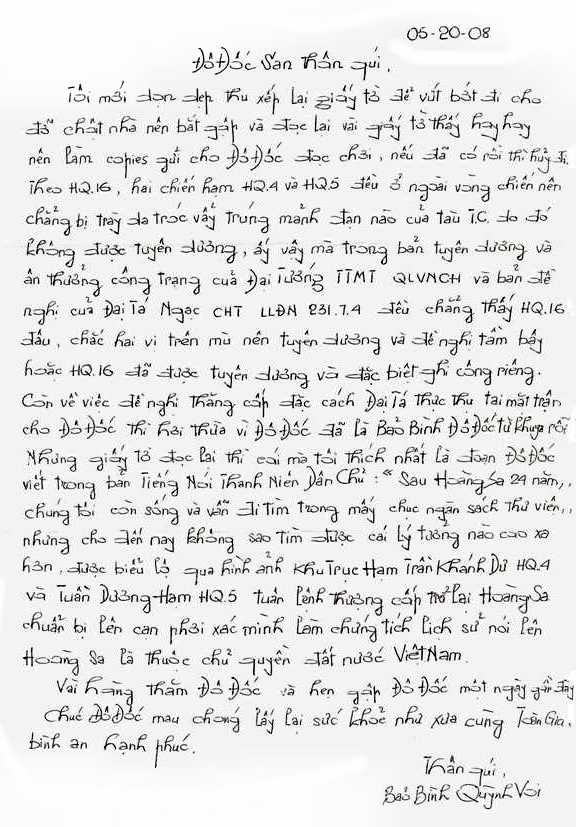 05-20-08
Đô Đốc San thân gửi,
Tôi mới dọn dẹp thu xếp lại giấy tờ để vứt bớt đi cho
đỡ chật nhà nên bắt gặp và đọc lại vài giấy tờ thấy hay hay
nên làm copies gửi cho Đô Đốc đọc chơi, nếu đã có rồi thì hủy đi.
Theo HQ.16, hai chiến hạm HQ.4 và HQ.5 đều ở ngoài vòng chiến nên
chẳng bị trầy da tróc vẩy trúng mảnh đạn nào của tàu T.C. do đó
không được tuyên dương, ấy vậy mà trong bản tuyên dương và
ân thưởng công trạng của Đại Tướng TTMT QLVNCH và bản đề
nghị của Đại Tá Ngạc CHT LLĐN 231.7.4 đều chẳng thấy HQ.16
đâu, chắc hai vị trên mù nên tuyên dương và đề nghị tầm bậy
hoặc HQ.16 đã được tuyên dương và đặc biệt ghi công riêng.
Còn về việc đề nghị thăng cấp đặc cách Đại Tá Thực thụ tại mặt trận
cho Đô Đốc thì hơi thừa vì Đô Đốc đã là Bảo Bình Đô Đốc từ khuya rồi
Những giấy tờ đọc lại thì cái mà tôi thích nhất là đoạn Đô Đốc
viết trong bản Tiếng Nói Thanh Niên Dân Chủ: "Sau Hoàng Sa 24 năm,,
chúng tôi còn sống và vẫn đi tìm trong mấy chục ngàn sách thư viện,,
nhưng cho đến nay không sao tìm được cái lý tưởng nào cao xa
hơn, được biểu lộ qua hình ảnh Khu Trục Hạm Trần Khánh Dư HQ.4
và Tuần Dương-Hạm HQ.5 tuân lệnh thượng cấp trở lại Hoàng Sa
chuẩn bị lên cạn phơi xác mình làm chứng tích lịch sử nói lên
Hoàng Sa là thuộc chủ quyền đất nước Việt Nam.
Vài hàng thăm Đô Đốc và hẹn gặp Đô Đốc một ngày gần đây
Chúc Đô Đốc mau chóng lấy lại sức khỏe như xưa cùng Toàn Gia,
bình an hạnh phúc.
Thân gửi,
Bảo Bình Quỳnh Voi